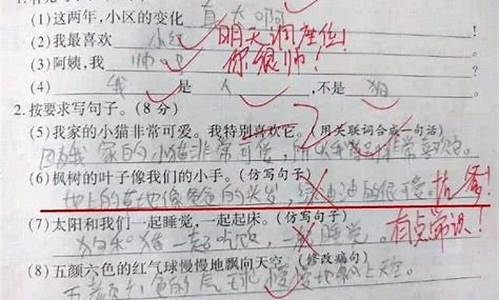 (1)这两年,小区的变化真大啊
(2)我最喜欢小红 明天调座位!
(3)阿姨,我帅吧 你很帅!
(4)我是人,不是狗
2.按要求写句子。(8 分)
(5)我家的小猫非常可爱。我特别喜欢它。(用关联词合成一句话)
因为我家的小猫非常可爱,所以我特别非常喜欢它。
(6)枫树的叶子像我们的小手。(仿写句子)
地上的草地像爸爸的头发,绿油油的很可爱。
(7)太阳和我们一起睡觉,一起起床。(仿写句子)
一起吃饭,一起睡觉。 有点常识!
(8)五颜六色的红气球慢慢地飘向天空。(修改病句)
五颜六色的气球慢慢地飘上天空。